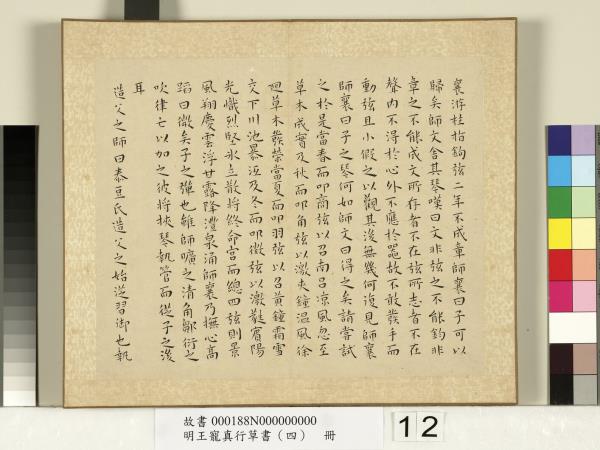 襄游柱指鈞弦三年不成章師襄曰子可以
歸矣師文舍其琴嘆曰文非弦之不能鈞非
章之不能成文所存者不在弦所志者不在
聲內不得於心外不應於器故不敢發手而
動弦且小假之以觀其後無幾何復見師襄
師襄曰子之琴何如師文曰得之矣請嘗試
之於是當春而叩商弦以召南呂涼風忽至
草木成實及秋而叩角弦以激夾鐘溫風徐
迴草木發榮當夏而叩羽弦以召黃鐘霜雪
交下川池暴沍及冬而叩徵弦以激蕤賓陽
光熾烈堅冰立散將終命宮而總四弦則景
風翔慶雲浮甘露降澧泉涌師襄乃撫心高
蹈曰微矣子之彈也雖師曠之清角鄒衍之
吹律亡以加之彼將挾琴執管而從子之後
耳
造父之師曰泰豆氏造父之始從習御也執
故書 000188N000000000
明王寵真行草書（四） 冊
12